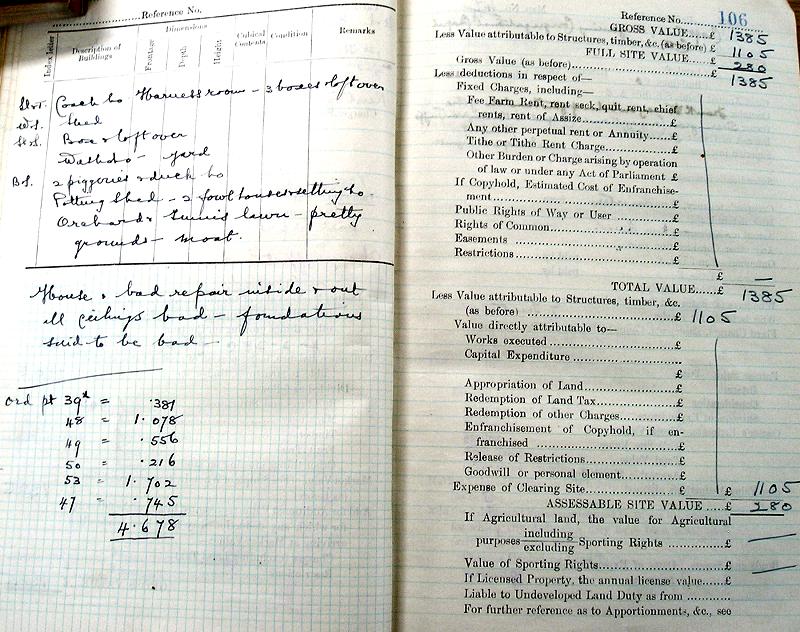 Reference No.
Dimensions
Index letter
Description of Buildings
Frontage
Depth
Height
Cubical Contents
Condition
Remarks
Coach ho Harness room - 3 boxes & loft over
Shed
Box & loft over
Washho - yard
2 piggeries & duck ho
Potting Shed - 2 fowl houses & setting ho
Orchard & tennis lawn - pretty
grounds - moat.
House & bad repair inside & out
all ceilings bad - foundations
said to be bad -
Ord pt 39a = .381
48 = 1.078
49 = .556
50 = .216
53 = 1.702
47 = .745
4.678
Reference No. 106
GROSS VALUE.....£ 1385
Less Value attributable to Structures, timber, &c. (as before) £ 1105
FULL SITE VALUE....£ 280
Gross Value (as before)....£ 1385
Less deductions in respect of—
Fixed Charges, including—
Fee Farm Rent, rent seck, quit rent, chief
rents, rent of Assize....£
Any other perpetual rent or Annuity....£
Tithe or Tithe Rent Charge....£
Other Burden or Charge arising by operation
of law or under any Act of Parliament £
If Copyhold, Estimated Cost of Enfranchise-
ment....£
Public Rights of Way or User ....£
Rights of Common....£
Easements ....£
Restrictions....£
£ —
TOTAL VALUE.....£ 1385
Less Value attributable to Structures, timber, &c.
(as before) ....£ 1105
Value directly attributable to—
Works executed ....£
Capital Expenditure ....
£
Appropriation of Land....£
Redemption of Land Tax....£
Redemption of other Charges....£
Enfranchisement of Copyhold, if en-
franchised ....£
Release of Restrictions....£
Goodwill or personal element....£
Expense of Clearing Site....£ £ 1105
ASSESSABLE SITE VALUE ....£ 280
If Agricultural land, the value for Agricultural
purposes including excluding Sporting Rights ....£ —
Value of Sporting Rights....£ —
If Licensed Property, the annual license value.....£
Liable to Undeveloped Land Duty as from ....
For further reference as to Apportionments, &c., see